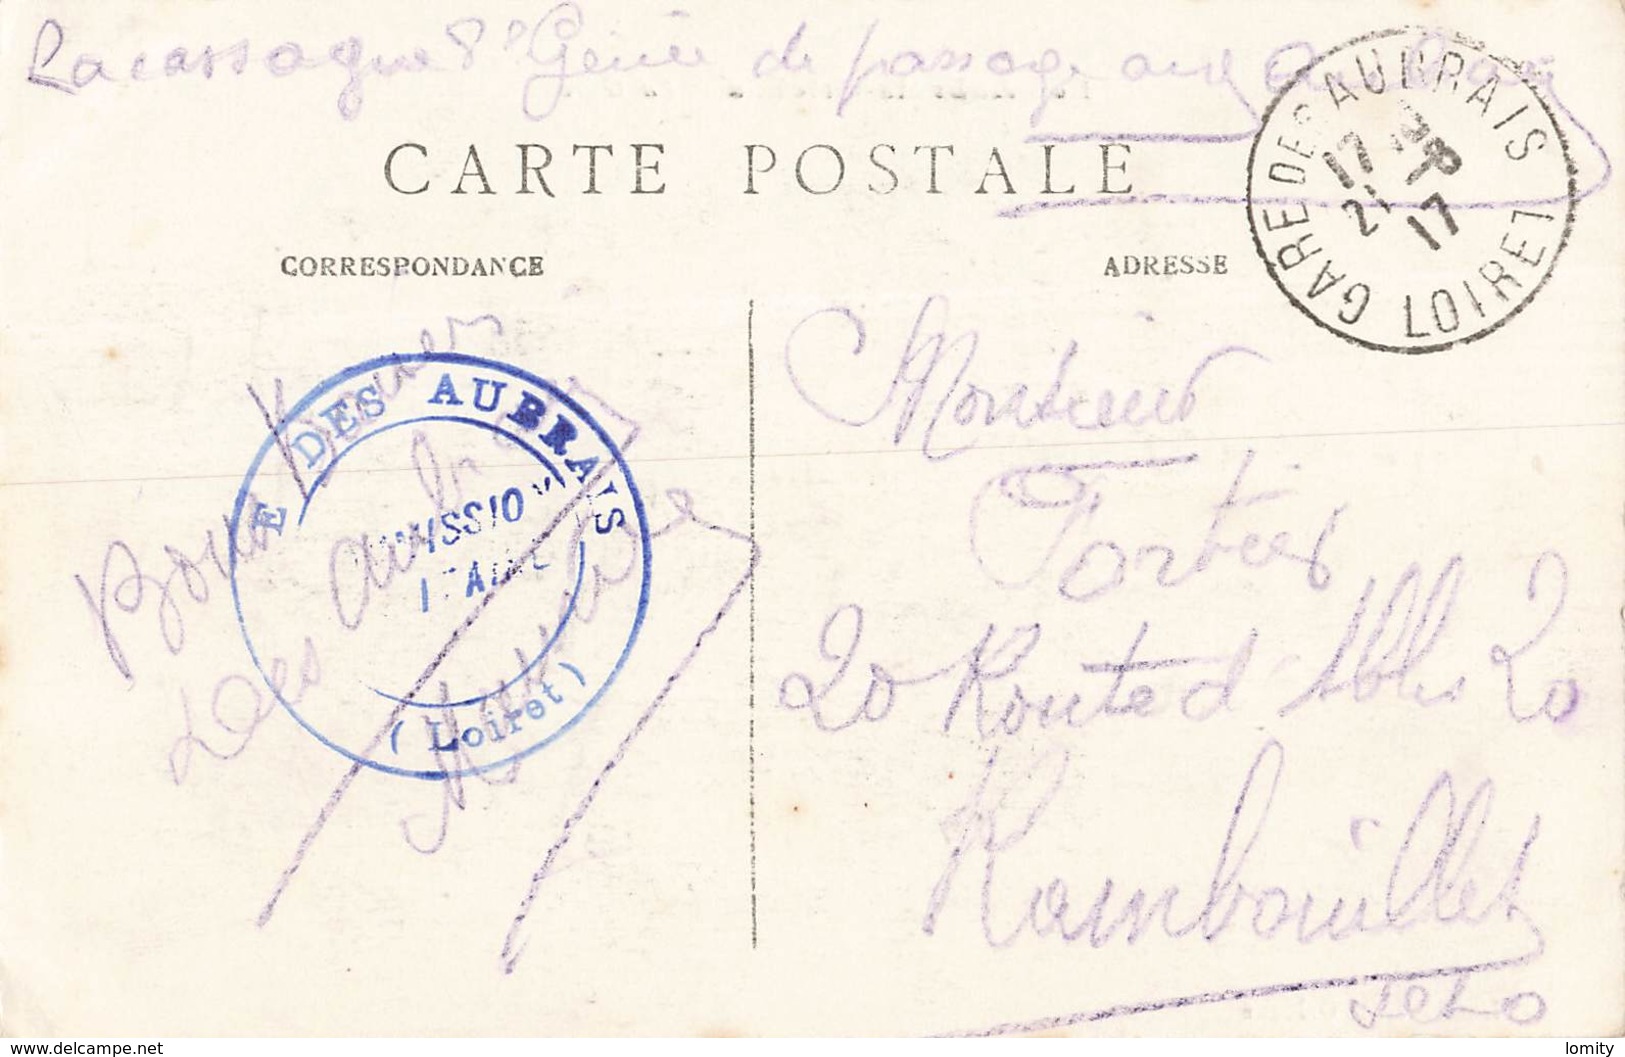 Lacassagne 8e Génie de passage aux Aubrais
CARTE POSTALE
CORRESPONDANCE
ADRESSE
GARE DES AUBRAIS
17
21 -8
17
LOIRET
Bons baisers
Les Aubrais
E DES AUBRAIS
MISSION
ITAIRE
(Loiret)
Monsieur
Fortier
20 Route d'Ablis 20
Rambouillet
S et O
delcampe.net
lomity